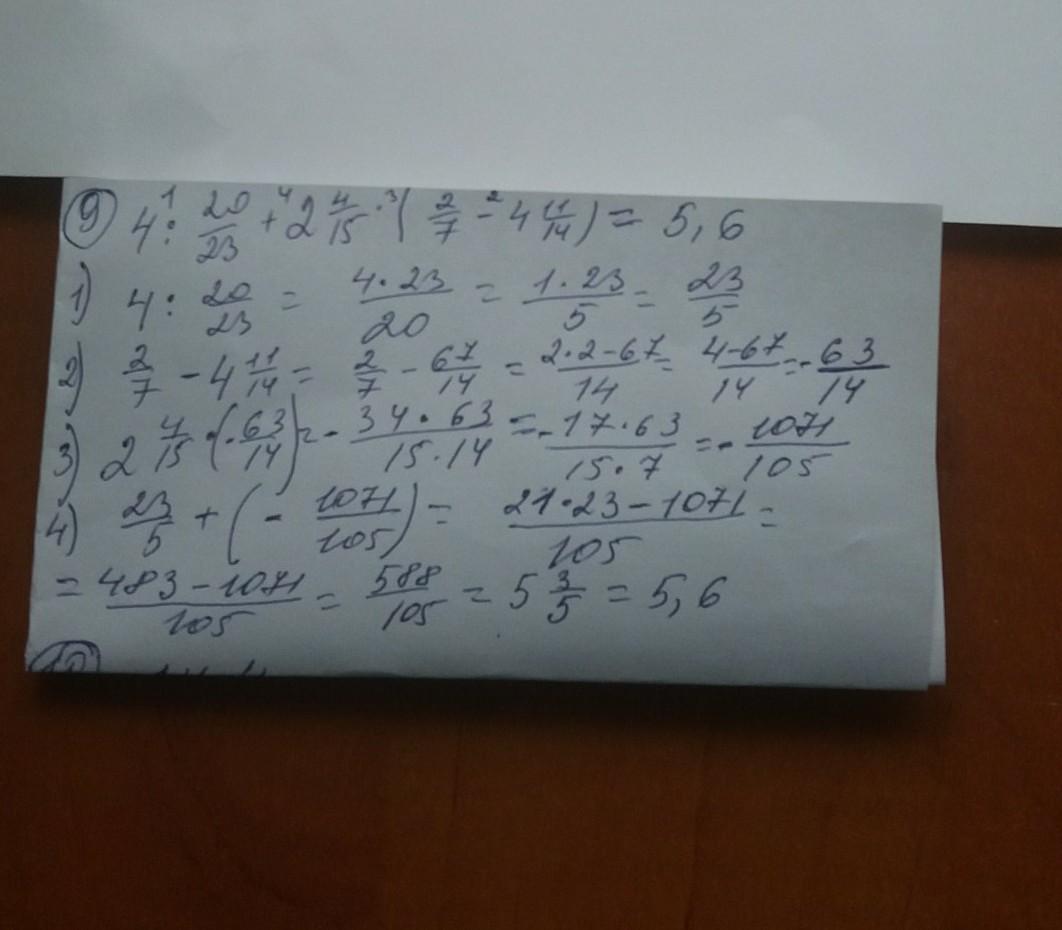 9 4 :¹ 20/23 +⁴ 2 4/15 ·³ ( 2/7 -² 4 11/14 ) = 5,6
1) 4 : 20/23 = 4·23/20 = 1·23/5 = 23/5
2) 2/7 - 4 11/14 = 2/7 - 67/14 = 2·2-67/14 = 4-67/14 = - 63/14
3) 2 4/15 · (- 63/14) = - 34·63/15·14 = - 17·63/15·7 = - 1071/105
4) 23/5 + (- 1071/105) = 21·23-1071/105 =
= 483-1071/105 = 588/105 = 5 3/5 = 5,6